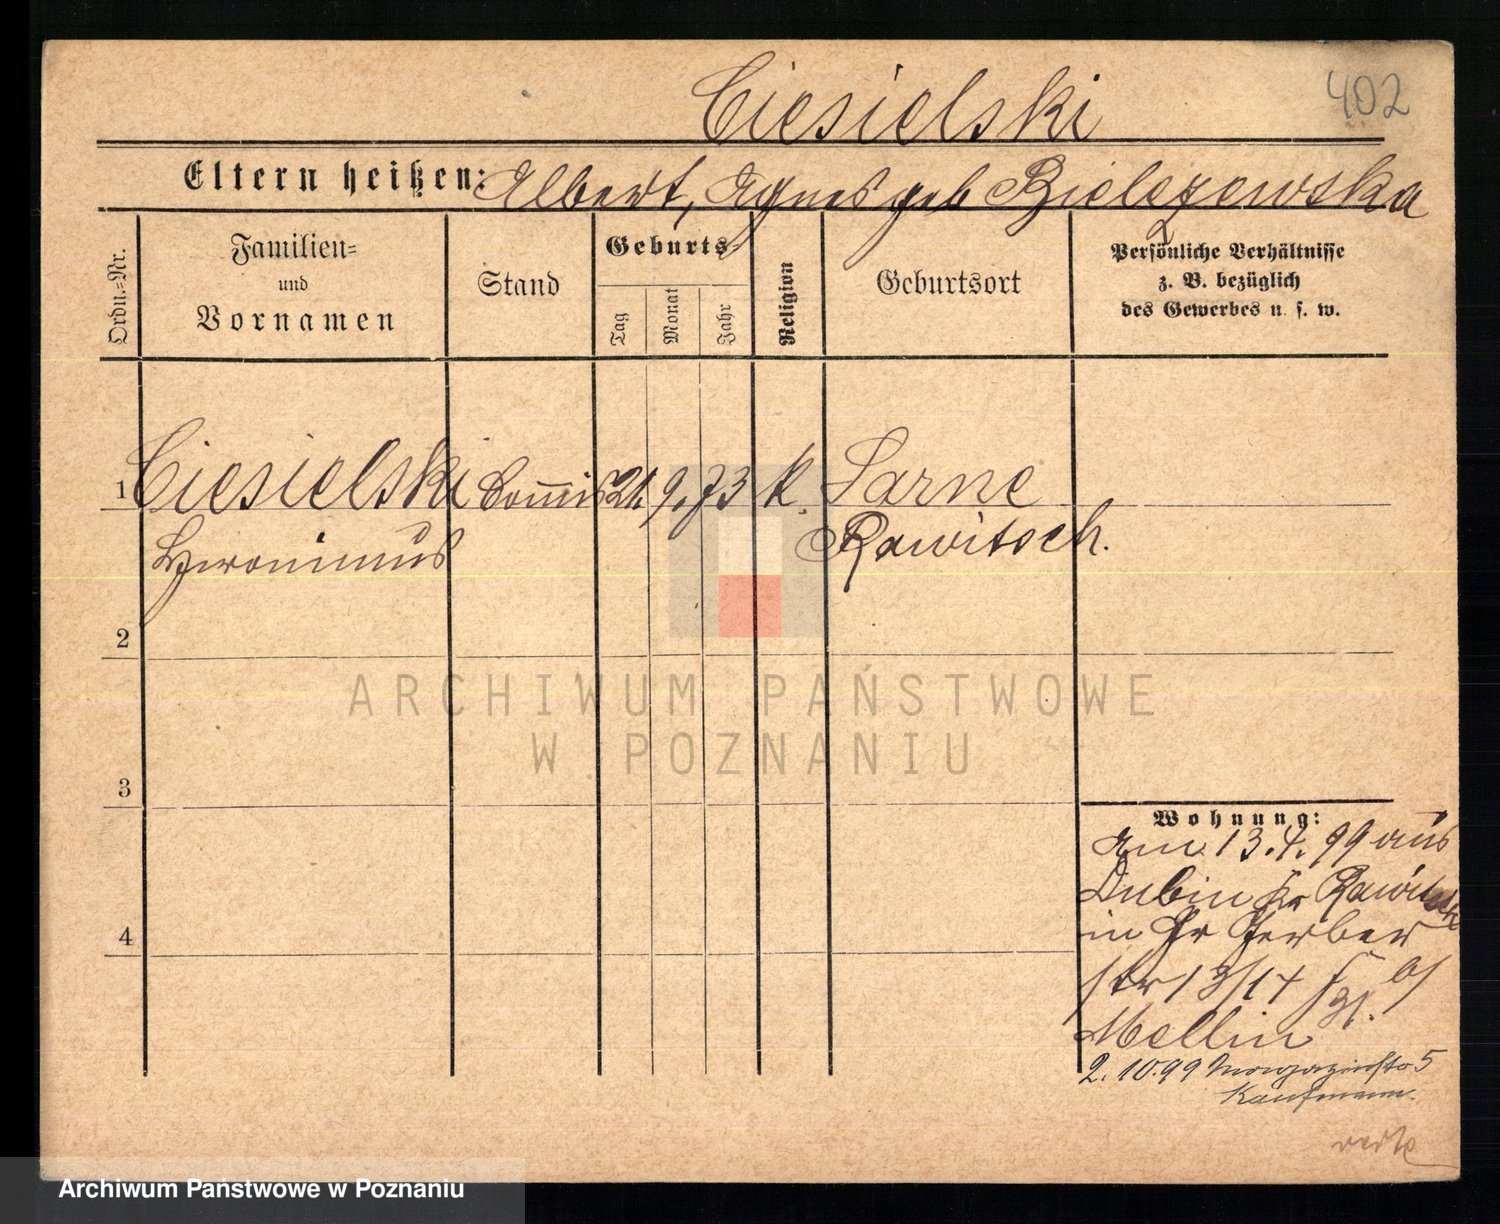 Ciesielski
402
Eltern heißen: Albert, Agnes geb Bielezewska
Ordn.-Nr.
Familien-
und
Vornamen
Stand
Geburts-
Tag
Monat
Jahr
Religion
Geburtsort
Persönliche Verhältnisse
z. B. bezüglich
des Gewerbes u. s. w.
1 Ciesielski Commis 21. 9. 73 k. Sarne
Hieronimus Rawitsch.
2
3
4
Wohnung:
Am 13.4.99 aus
Dubin Kr Rawitsch
in Gr Gerber
str 13/14
Mellin
2.10.99 Magazinstr 5
Kaufmann.
ARCHIWUM PAŃSTWOWE
W POZNANIU
Archiwum Państwowe w Poznaniu